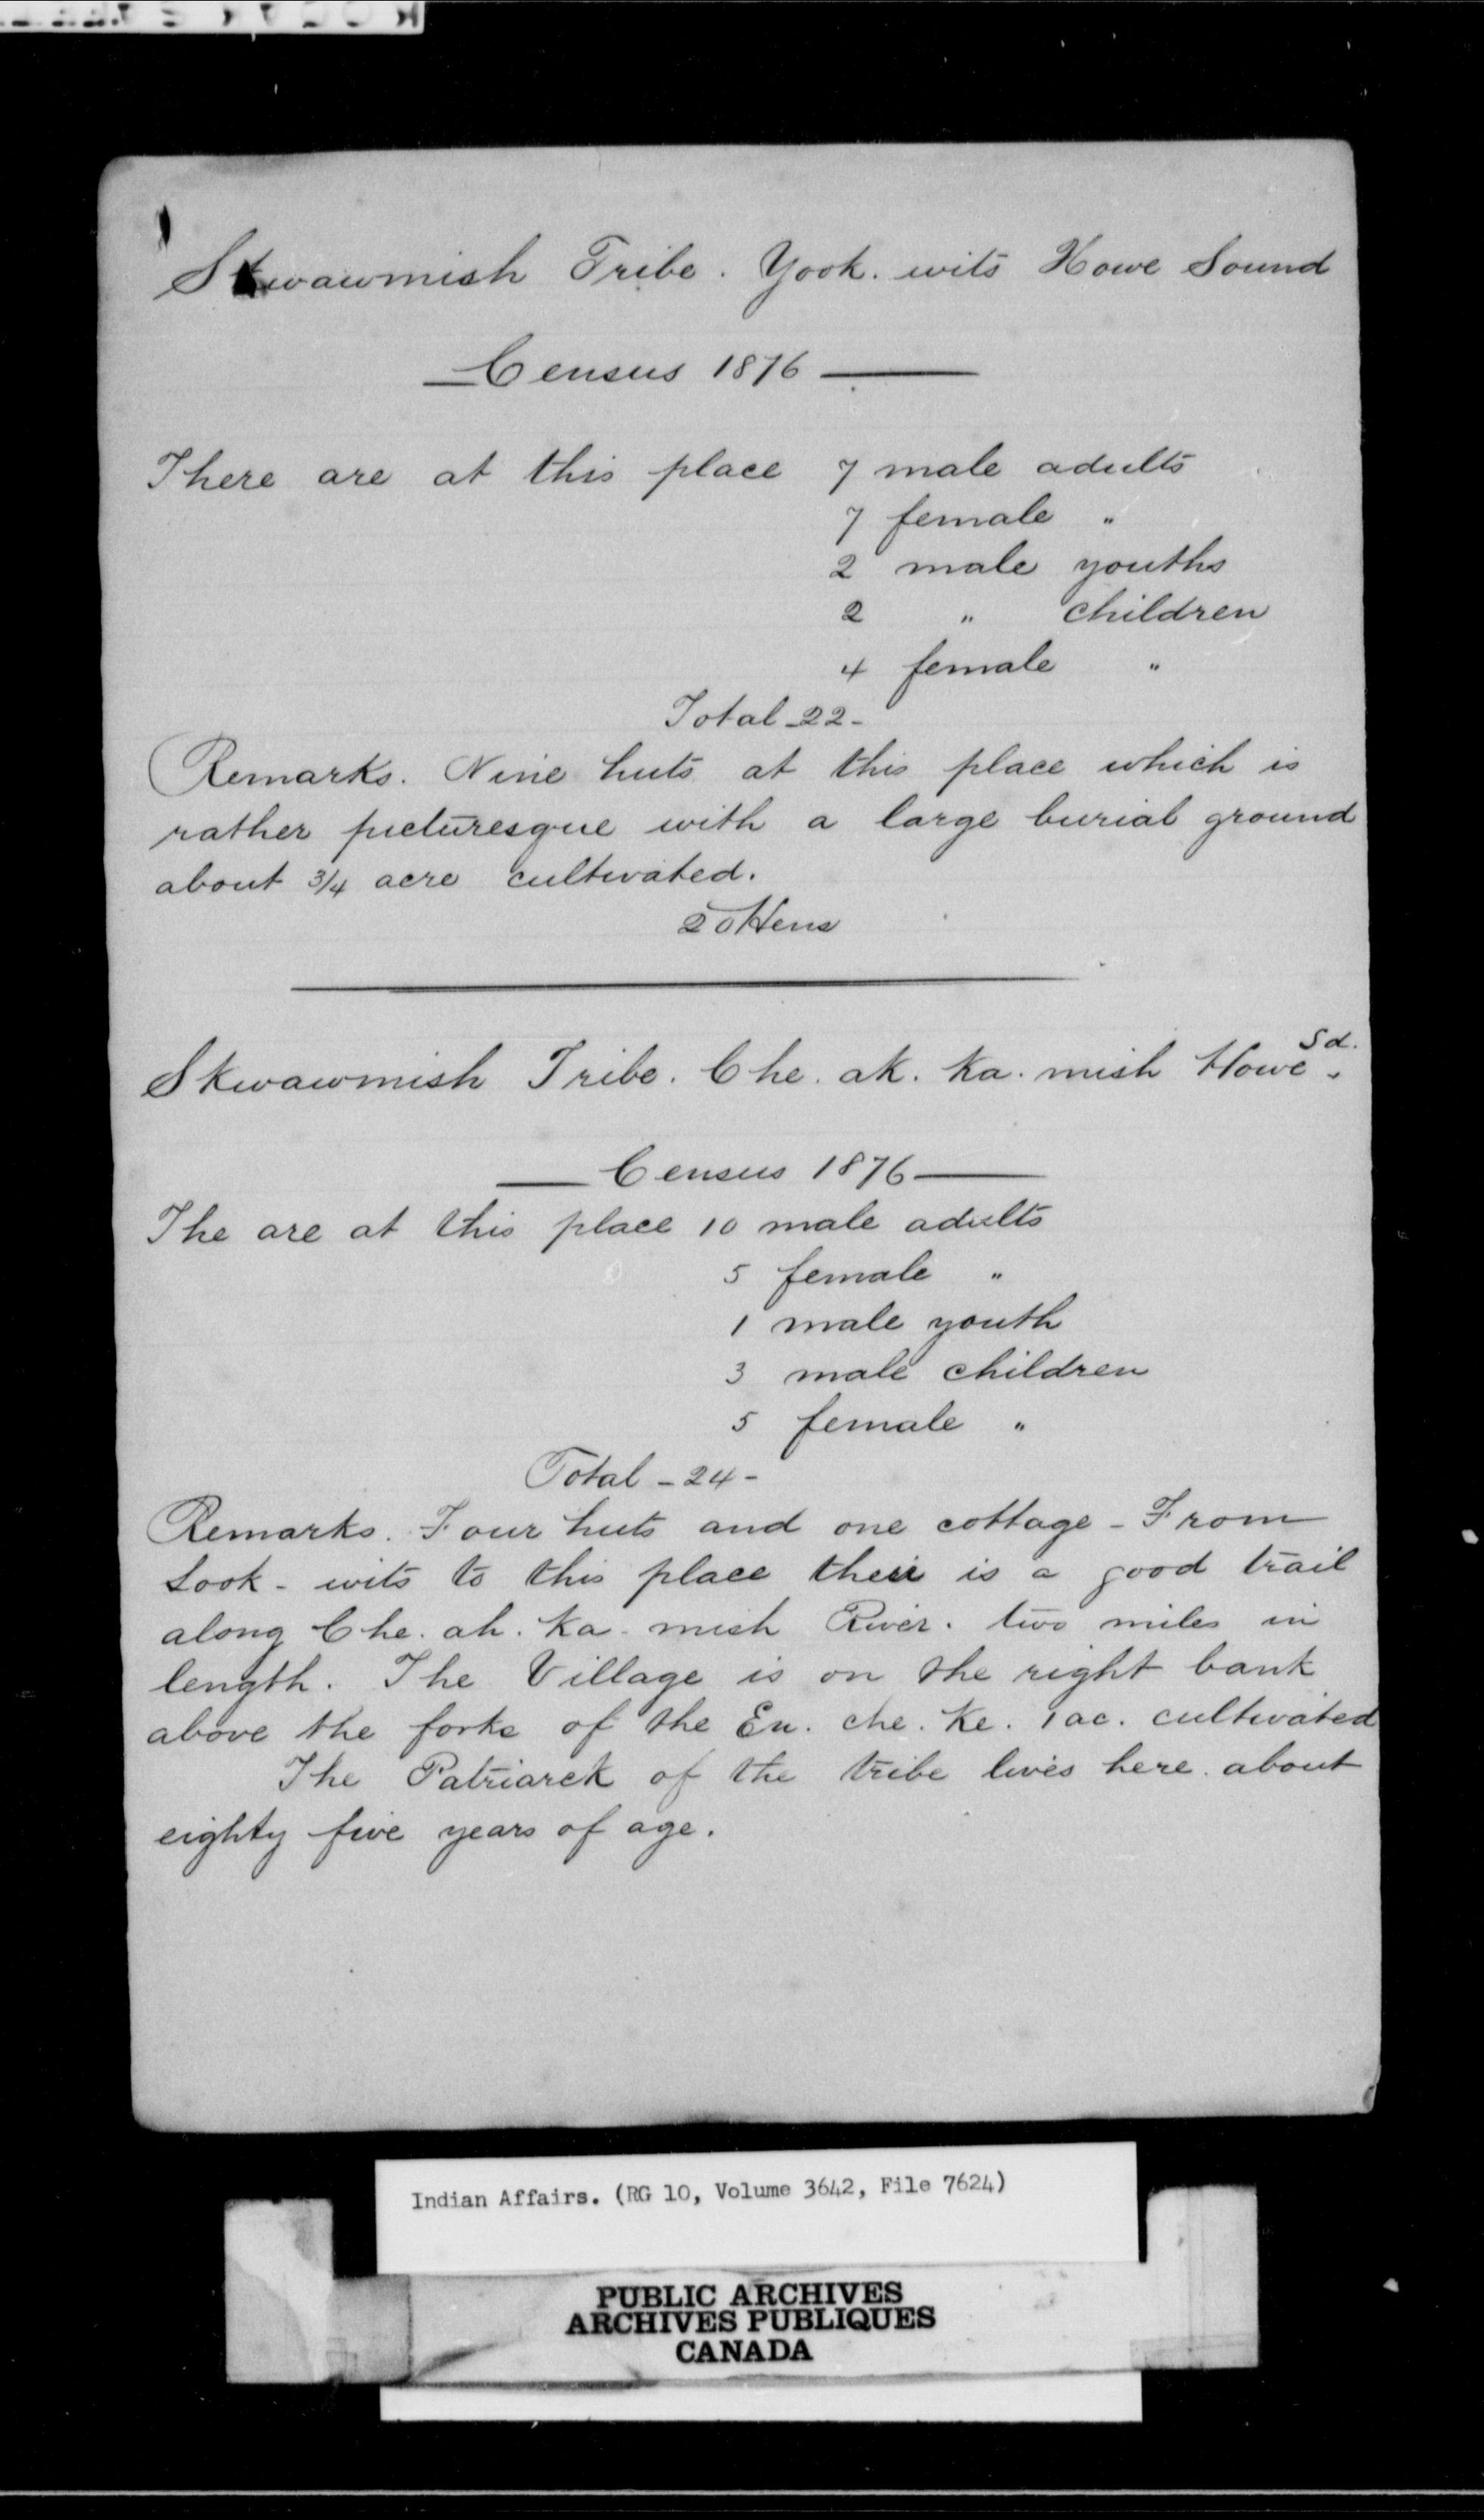 Skwawmish Tribe. Yook. wits Howe Sound
Census 1876
There are at this place 7 male adults
7 female "
2 male youths
2 " children
4 female "
Total - 22 -
Remarks. Nine huts at this place which is
rather picturesque with a large burial ground
about 3/4 acre cultivated.
20 Hens
Skwawmish Tribe. Che. ak. ka. mish Howe Sd.
Census 1876
The are at this place 10 male adults
5 female "
1 male youth
3 male children
5 female "
Total - 24 -
Remarks. Four huts and one cottage - From
Look - wits to this place their is a good trail
along Che. ah. ka - mish River. two miles in
length. The Village is on the right bank
above the forks of the En. che. ke. 1 ac. cultivated
The Patriarck of the tribe lives here. about
eighty five years of age.
Indian Affairs. (RG 10, Volume 3642, File 7624)
PUBLIC ARCHIVES
ARCHIVES PUBLIQUES
CANADA